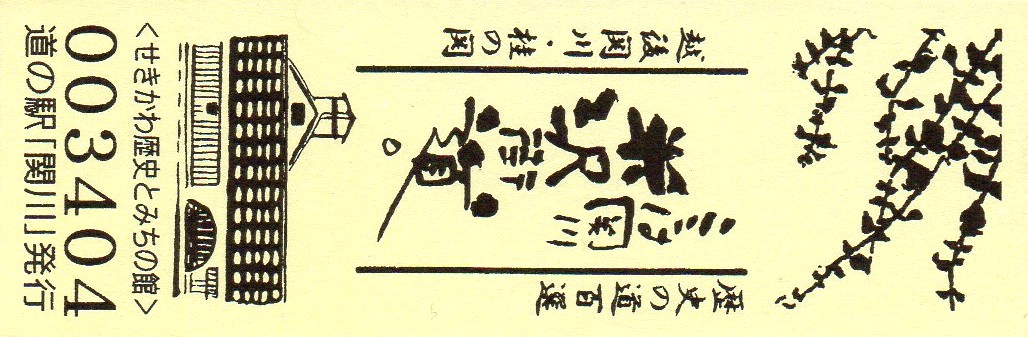 歴史の道百選
関川
米沢街道
越後関川・桂の関
<せきかわ歴史とみちの館>
003404
道の駅「関川」発行